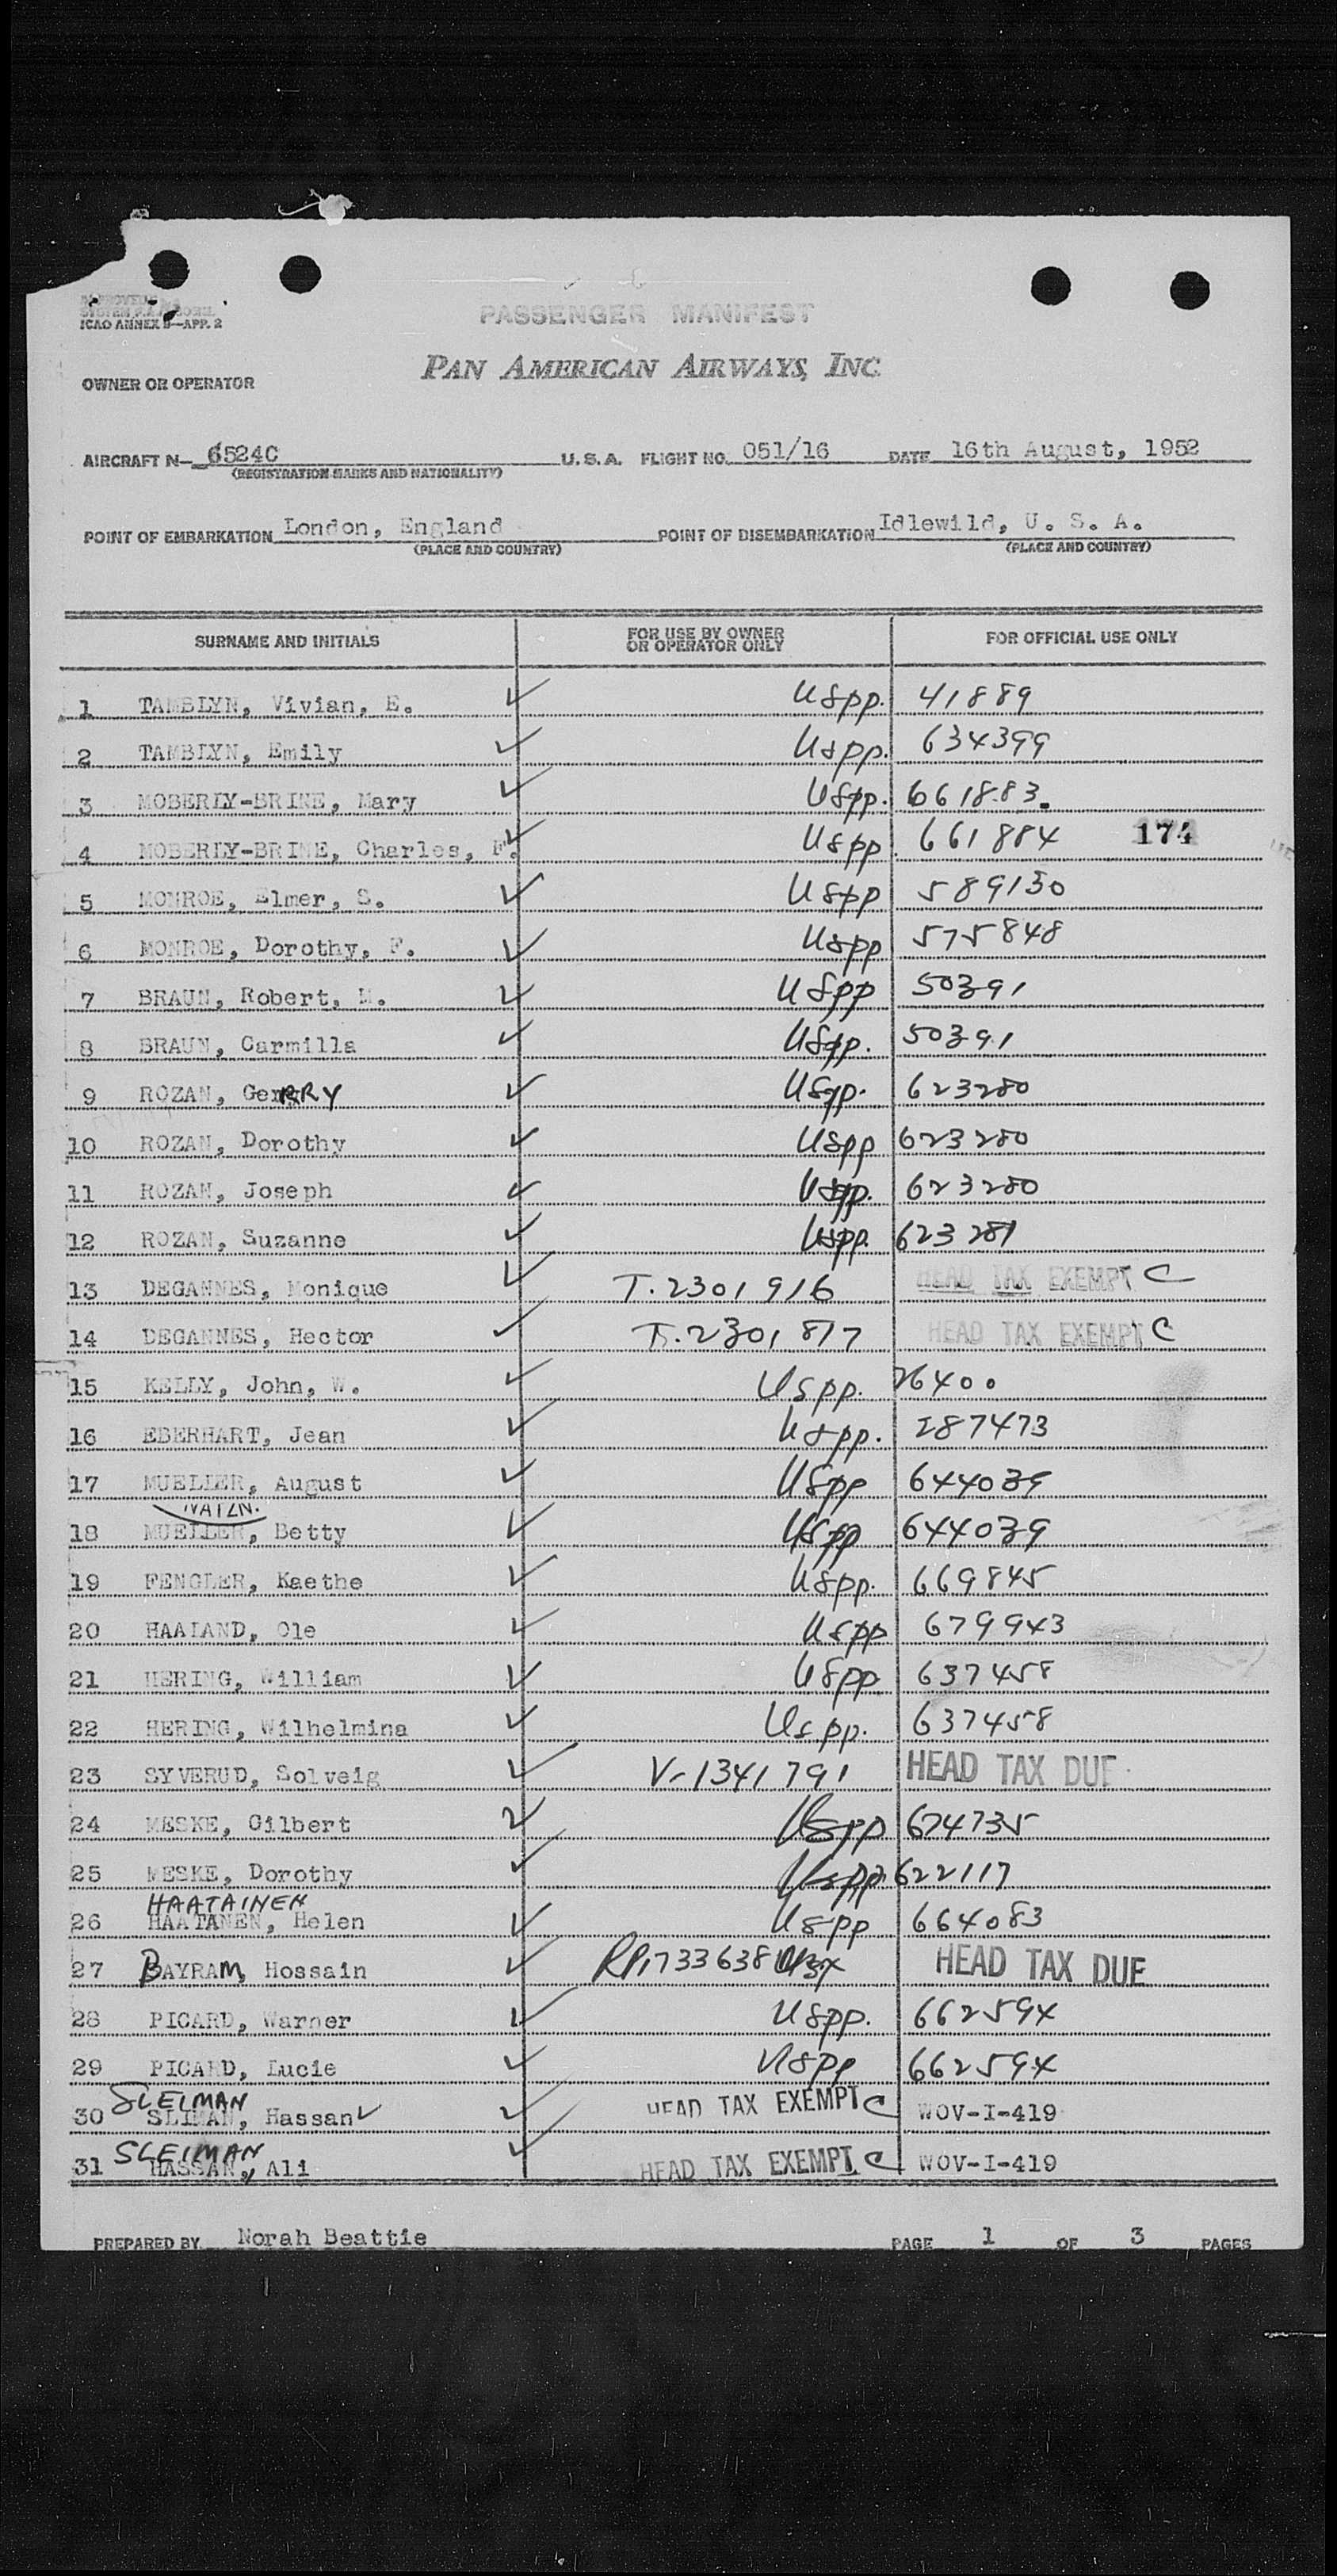 ICAO ANNEX 9—APP. 2
PASSENGER MANIFEST
PAN AMERICAN AIRWAYS, INC.
OWNER OR OPERATOR
AIRCRAFT N— 6524C U. S. A. FLIGHT NO. 051/16 DATE 16th August, 1952
(REGISTRATION MARKS AND NATIONALITY)
POINT OF EMBARKATION London, England POINT OF DISEMBARKATION Idlewild, U. S. A.
(PLACE AND COUNTRY) (PLACE AND COUNTRY)
SURNAME AND INITIALS FOR USE BY OWNER OR OPERATOR ONLY FOR OFFICIAL USE ONLY
1 TAMBLYN, Vivian, E. ✓ USpp. 41889
2 TAMBLYN, Emily ✓ USpp. 634399
3 MOBERLY-BRINE, Mary ✓ USpp. 661883.
4 MOBERLY-BRINE, Charles, F. ✓ USpp. 661884 174
5 MONROE, Elmer, S. ✓ USpp 589130
6 MONROE, Dorothy, F. ✓ USpp 575848
7 BRAUN, Robert, M. ✓ USpp 50391
8 BRAUN, Carmilla ✓ USpp. 50391
9 ROZAN, GerRRY ✓ USpp. 623280
10 ROZAN, Dorothy ✓ USpp 623280
11 ROZAN, Joseph ✓ USpp. 623280
12 ROZAN, Suzanne ✓ USpp. 623281
13 DEGANNES, Monique ✓ T.2301916 HEAD TAX EXEMPT C
14 DEGANNES, Hector ✓ T.2301817 HEAD TAX EXEMPT C
15 KELLY, John, W. ✓ USpp. 26400
16 EBERHART, Jean ✓ USpp. 287473
17 MUELLER, August ✓ USpp 644039
NATZN.
18 MUELLER, Betty ✓ USpp 644039
19 FENGLER, Kaethe ✓ USpp. 669845
20 HAALAND, Ole ✓ USpp 679943
21 HERING, William ✓ USpp 637458
22 HERING, Wilhelmina ✓ USpp. 637458
23 SYVERUD, Solveig ✓ V-1341791 HEAD TAX DUE
24 MESKE, Gilbert ✓ USpp 674735
25 MESKE, Dorothy ✓ USpp 622117
HAATAINEN
26 HAATANEN, Helen ✓ USpp 664083
27 BAYRAM, Hossain ✓ RP1733638 HEAD TAX DUE
28 PICARD, Warner ✓ USpp. 662594
29 PICARD, Lucie ✓ USpp 662594
SLEIMAN
30 SLIMAN, Hassan ✓ ✓ HEAD TAX EXEMPT C WOV-I-419
SLEIMAN
31 HASSAN, Ali ✓ HEAD TAX EXEMPT C WOV-I-419
PREPARED BY Norah Beattie PAGE 1 OF 3 PAGES